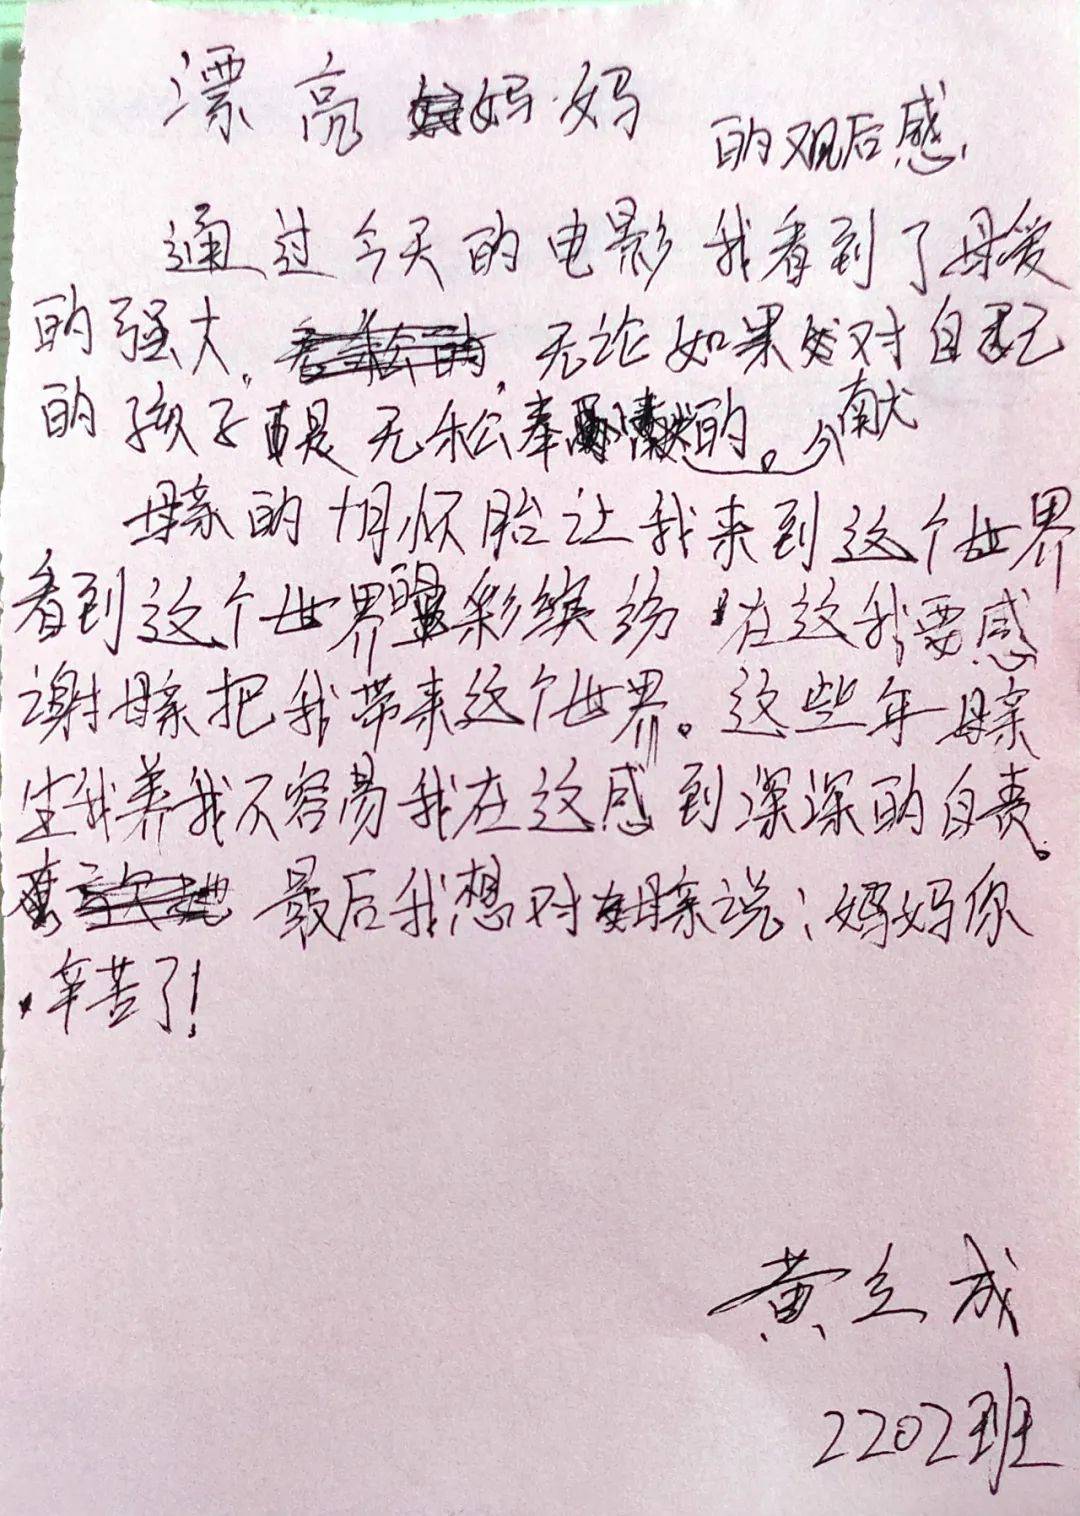 漂亮妈妈
的观后感
通过今天的电影我看到了母爱
的强大，无论如果对自己
的孩子真是无私奉献的。
母亲的十月怀胎让我来到这个世界
看到这个世界的彩缤纷 在这我要感
谢母亲把我带来这个世界。这些年母亲
生我养我不容易我在这感到深深的自责。
最后我想对母亲说：妈妈你
辛苦了！
黄立成
2202班